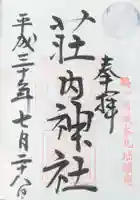 奉拝
荘内神社
平成三十年七月二十八日